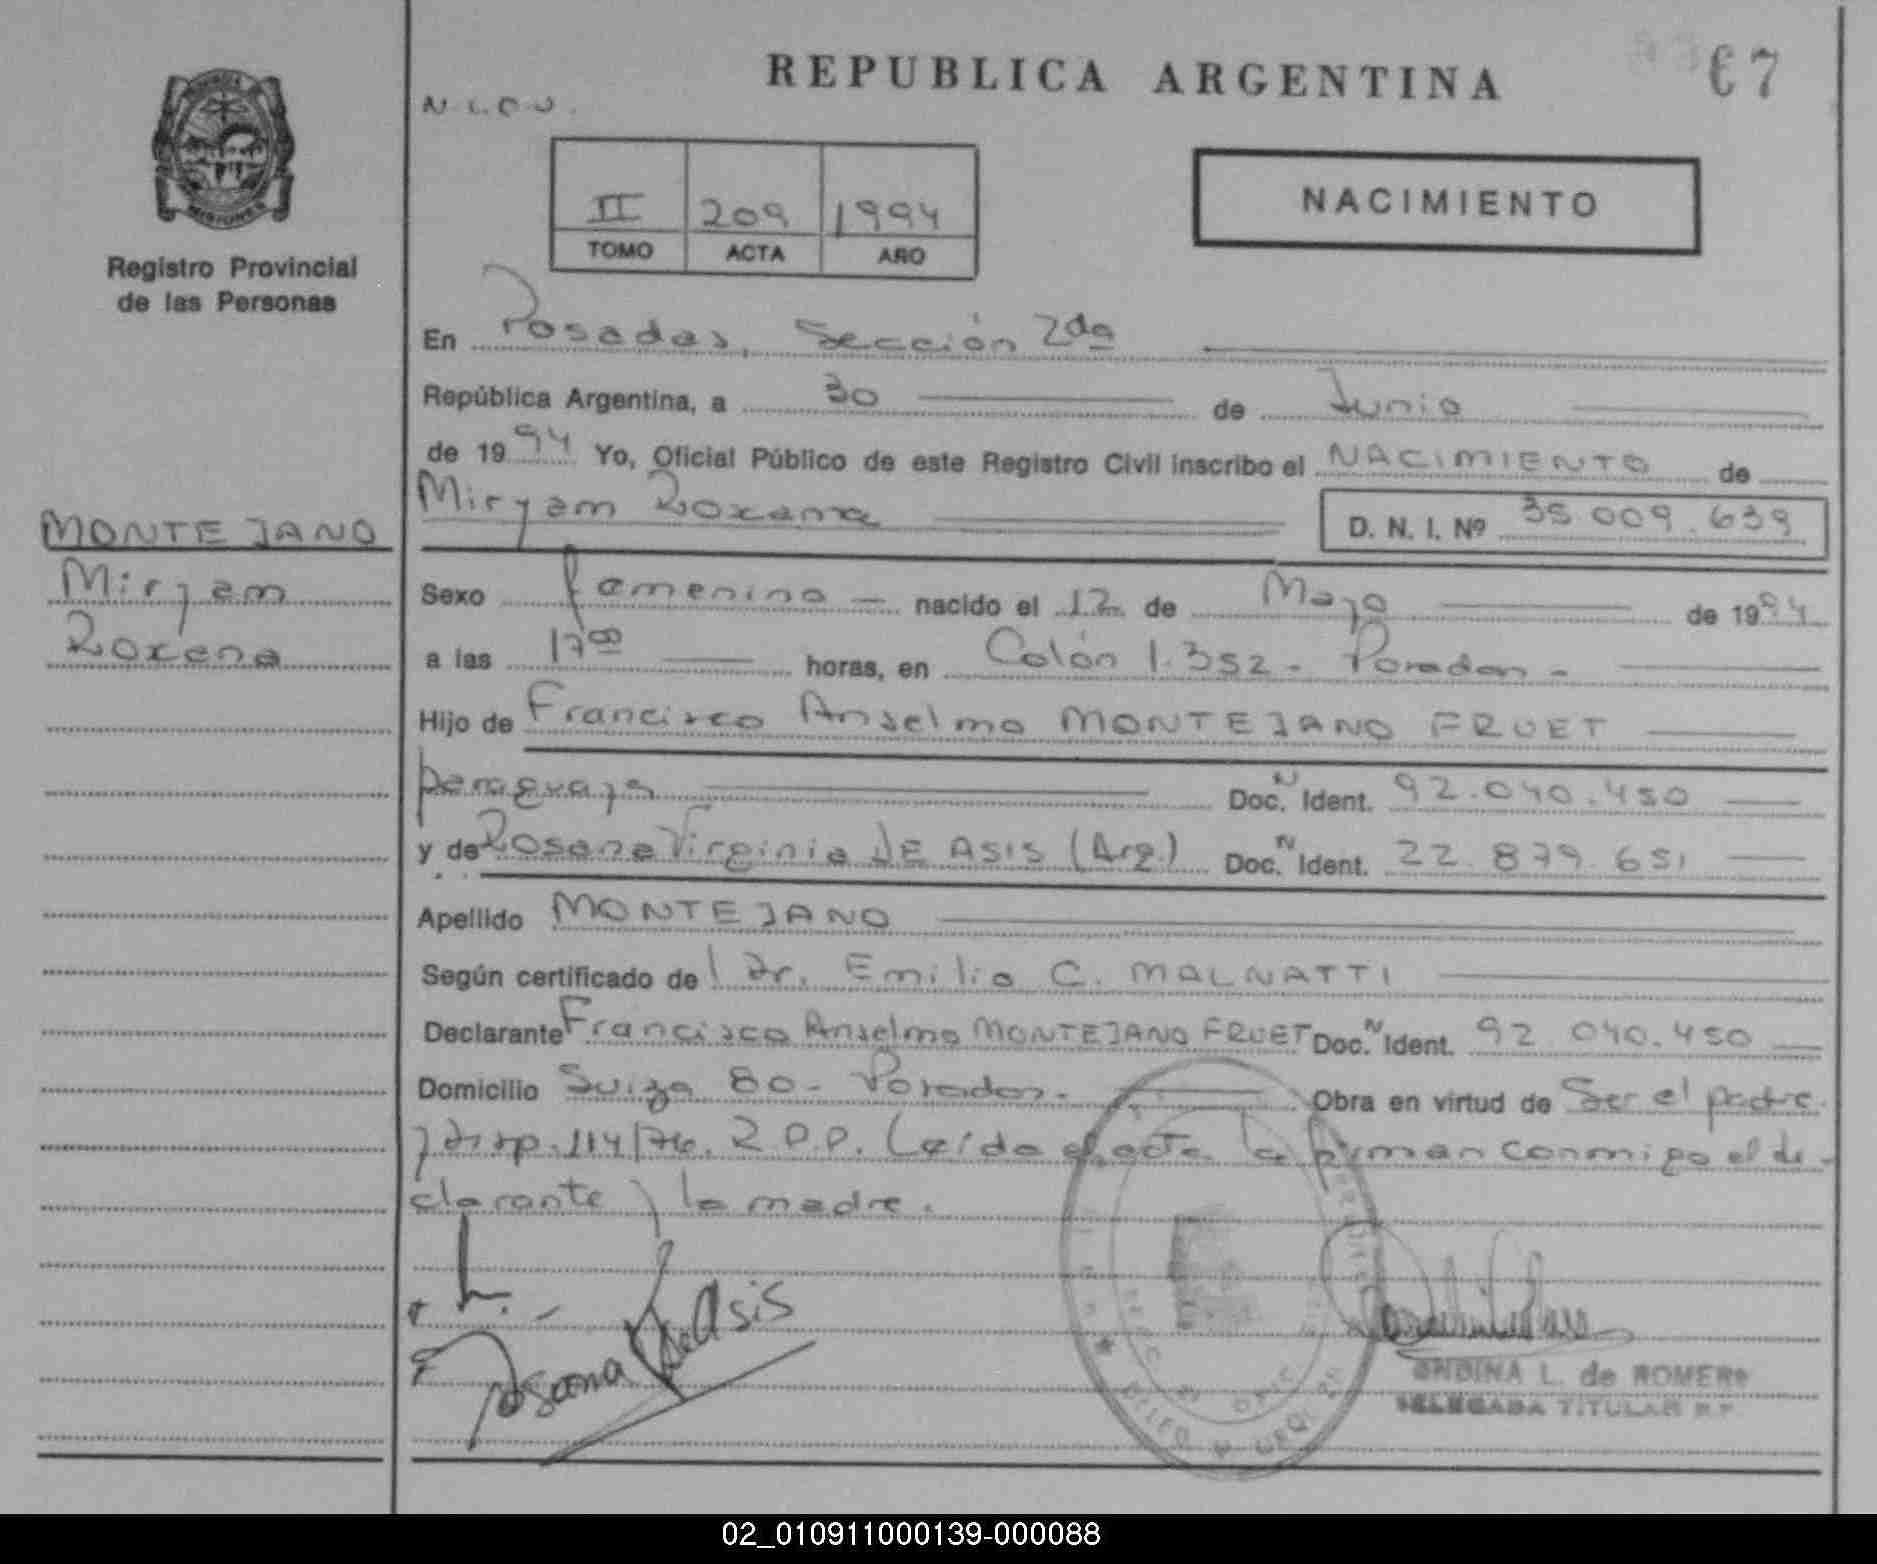 REPUBLICA ARGENTINA
67
N.L.O.U.
PROVINCIA
MISIONES
Registro Provincial
de las Personas
II 209 1994
TOMO ACTA AÑO
NACIMIENTO
En Posadas, Sección 2da
República Argentina, a 30 de Junio
de 1994 Yo, Oficial Público de este Registro Civil inscribo el NACIMIENTO de
Miryam Roxana D. N. I. Nº 35 009.639
MONTEJANO
Miryam
Roxana
Sexo femenino nacido el 12 de Mayo de 1994
a las 17 00 horas, en Colón 1.352 - Posadas -
Hijo de Francisco Anselmo MONTEJANO FRUET
paraguaya Doc. N Ident. 92.040.450
y de Rosana Virginia DE ASIS (Arg.) Doc. N Ident. 22.879.651
Apellido MONTEJANO
Según certificado de l Dr. Emilio C. MALNATTI
Declarante Francisco Anselmo MONTEJANO FRUET Doc. N Ident. 92.040.450
Domicilio Suiza 80 - Posadas. Obra en virtud de Ser el padre
y Disp. 114/76. R.P.P. Leída el acta la firman conmigo el de-
clarante y la madre.
Rosana De Asis
ONDINA L. de ROMERO
DELEGADA TITULAR R.P.
02_010911000139-000088